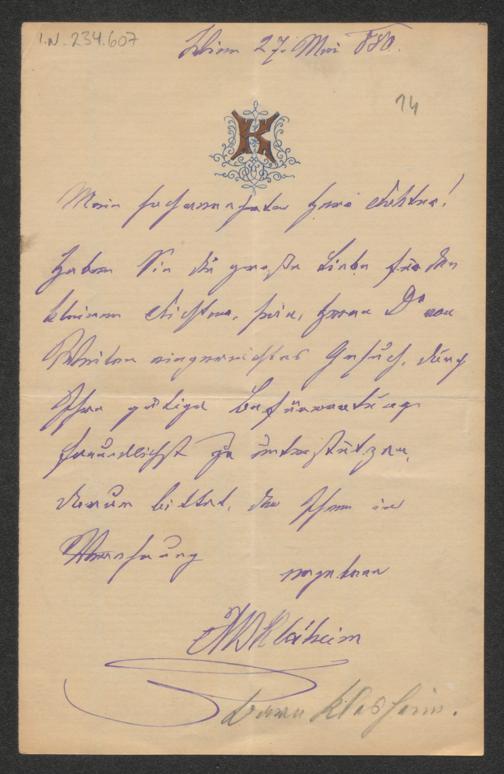 I.N. 234.607
Wien 27. Mai 880.
14
K
Mein hochverehrter Herr Doktor!
Haben Sie die große Liebe für den
kleinen Dichter, sein, Herrn Dr von
Weilen eingereichtes Gesuch, durch
Ihre gütige Befürwortung
freundlichst zu unterstützen,
darum bittet, der Ihnen in
Verehrung
ergebene
Klesheim
Baron Klesheim.